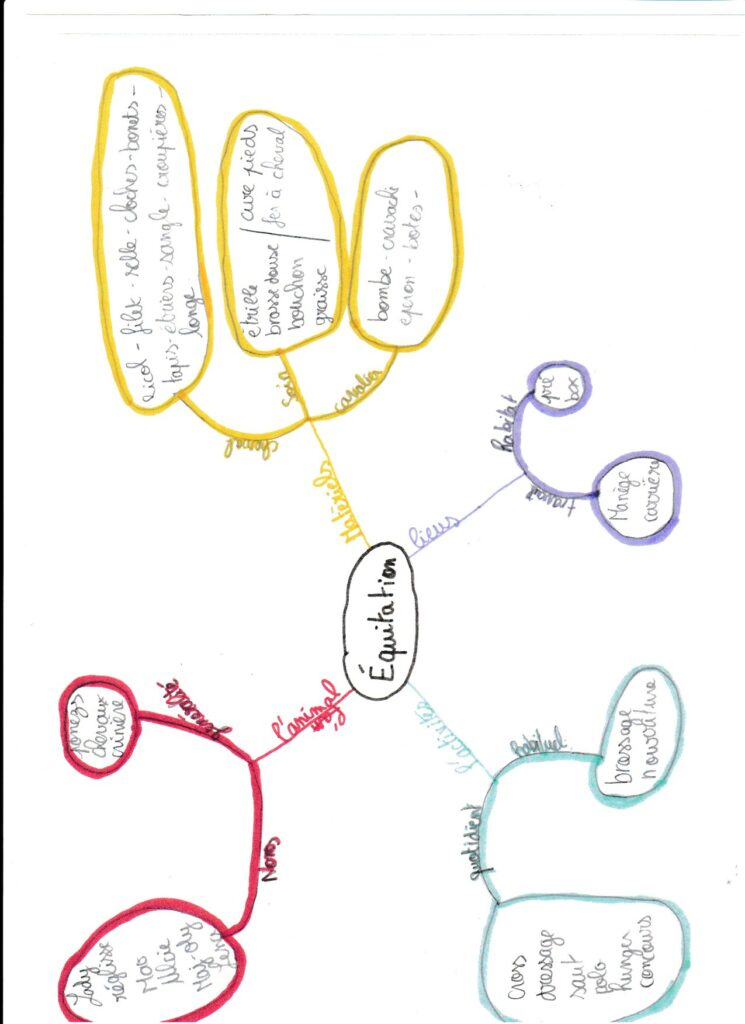 Équitation
l'animal
généralité
chevaux
crinière
Noms
Lady
réglisse
Moo
Matériels
cheval
licol - filet - selle - cloches - bonets -
tapis - étriers - sangle - croupières -
longe
soin
étrille / cure pieds
brosse douse / fer à cheval
bouchon
graisse
cavalier
bombe - cravache
eperon - botes -
lieus
habitat
pré
box
travail
Manège
carrière
l'activités
habituel
brossage
nourriture
quotidient
cross
dressage
saut
polo
hunger
concours